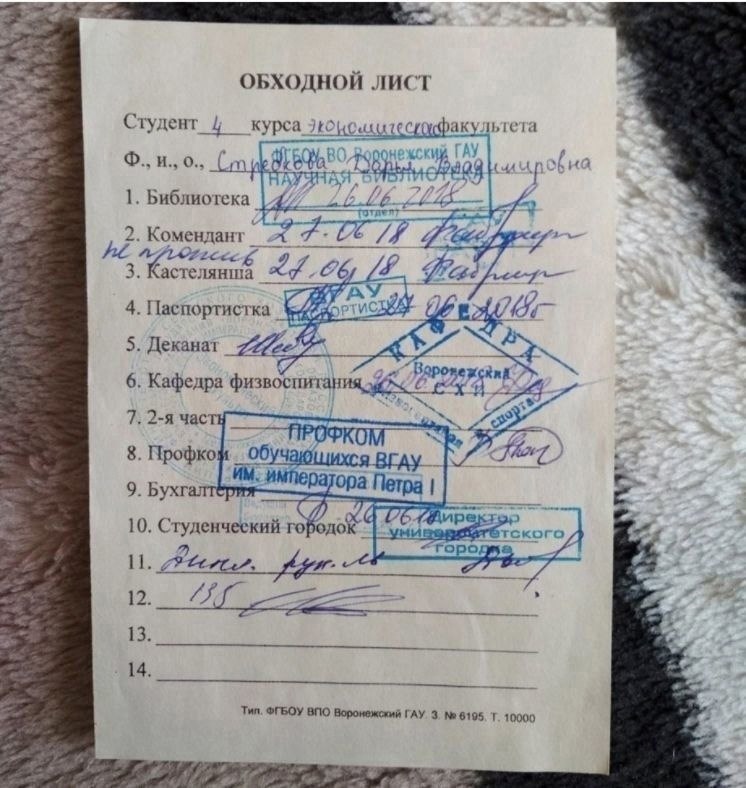 ОБХОДНОЙ ЛИСТ
Студент 4 курса экономическ факультета
Ф., и., о., Стребкова Дарья Владимировна
ФГБОУ ВО Воронежский ГАУ
НАУЧНАЯ БИБЛИОТЕКА
(отдел)
1. Библиотека 26.06.2018
2. Комендант 27.06 18
не против
3. Кастелянша 27.06 18
ВГАУ
ПАСПОРТИСТКА
4. Паспортистка 27 06 2018г
5. Деканат
КАФЕДРА
Воронежский
СХИ
спорта
6. Кафедра физвоспитания 26.06.2018
7. 2-я часть
ПРОФКОМ
обучающихся ВГАУ
им. императора Петра I
8. Профком
9. Бухгалтерия
10. Студенческий городок 26 06 18
Директор
университетского
городка
11. Дипл. рук-ль
12. 135
13.
14.
Тип. ФГБОУ ВПО Воронежский ГАУ. З. № 6195. Т. 10000